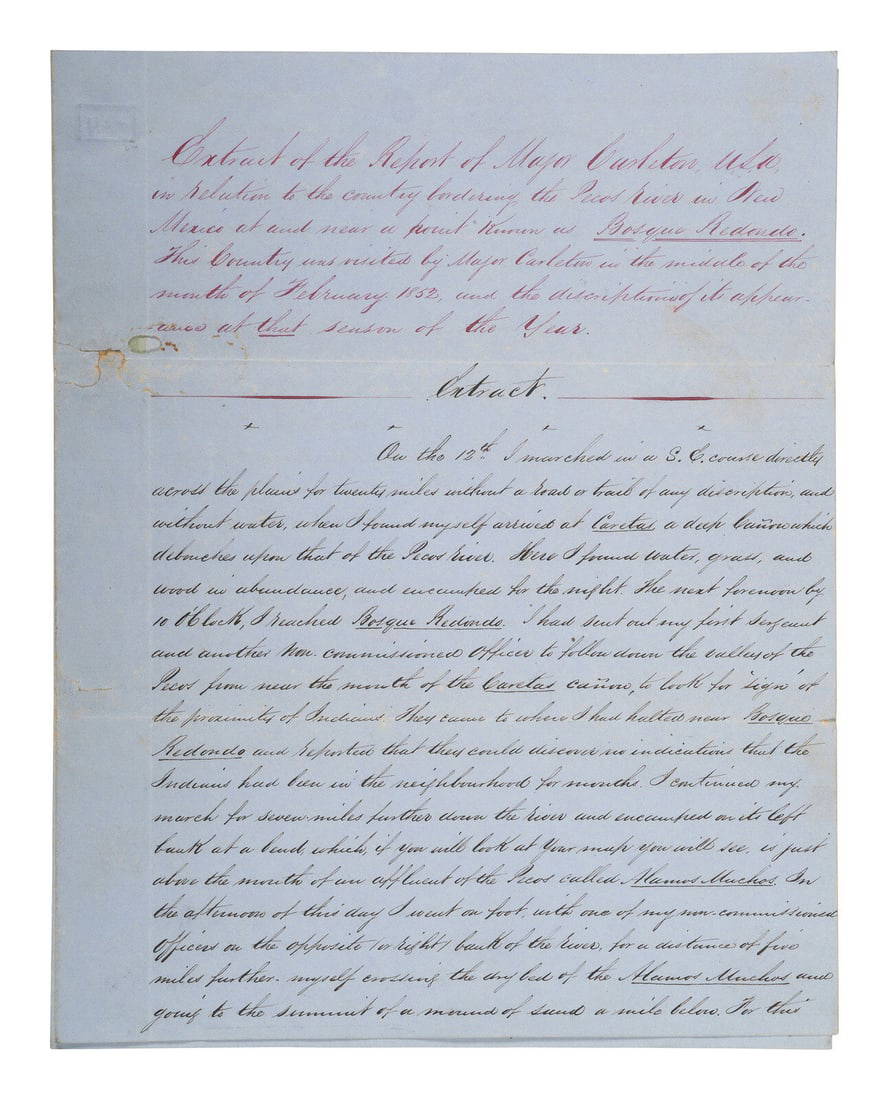 Extract of the Report of Major Carleton, U.S.A,
in relation to the country bordering the Pecos River in New
Mexico at and near a point Known as Bosque Redondo.
This Country was visited by Major Carleton in the middle of the
month of February 1852, and the discription of it appear-
ance at that season of the Year.
Extract.
On the 12th I marched in a S. E. course directly
across the plains for twenty miles without a road or trail of any discription, and
without water, when I found myself arrived at Caretas a deep Cañon which
debouches upon that of the Pecos River. Here I found water, grass, and
wood in abundance, and encamped for the night. The next forenoon by
10 O'Clock, I reached Bosque Redondo. I had sent out my first Sergeant
and another Non-commissioned Officer to follow down the valley of the
Pecos from near the mouth of the Caretas cañon, to look for "sign" of
the proximity of Indians. They came to where I had halted near Bosque
Redondo and reported that they could discover no indications that the
Indians had been in the neighbourhood for months. I continued my
march for seven miles further down the river and encamped on its left
bank at a bend, which, if you will look at your map you will see, is just
above the mouth of an affluent of the Pecos called Alamos Muchos. In
the afternoon of this day I went on foot, with one of my non-commissioned
Officers on the opposite (or right) bank of the river, for a distance of five
miles further - myself crossing the dry bed of the Alamos Muchos and
going to the summit of a mound of sand a mile below. For this